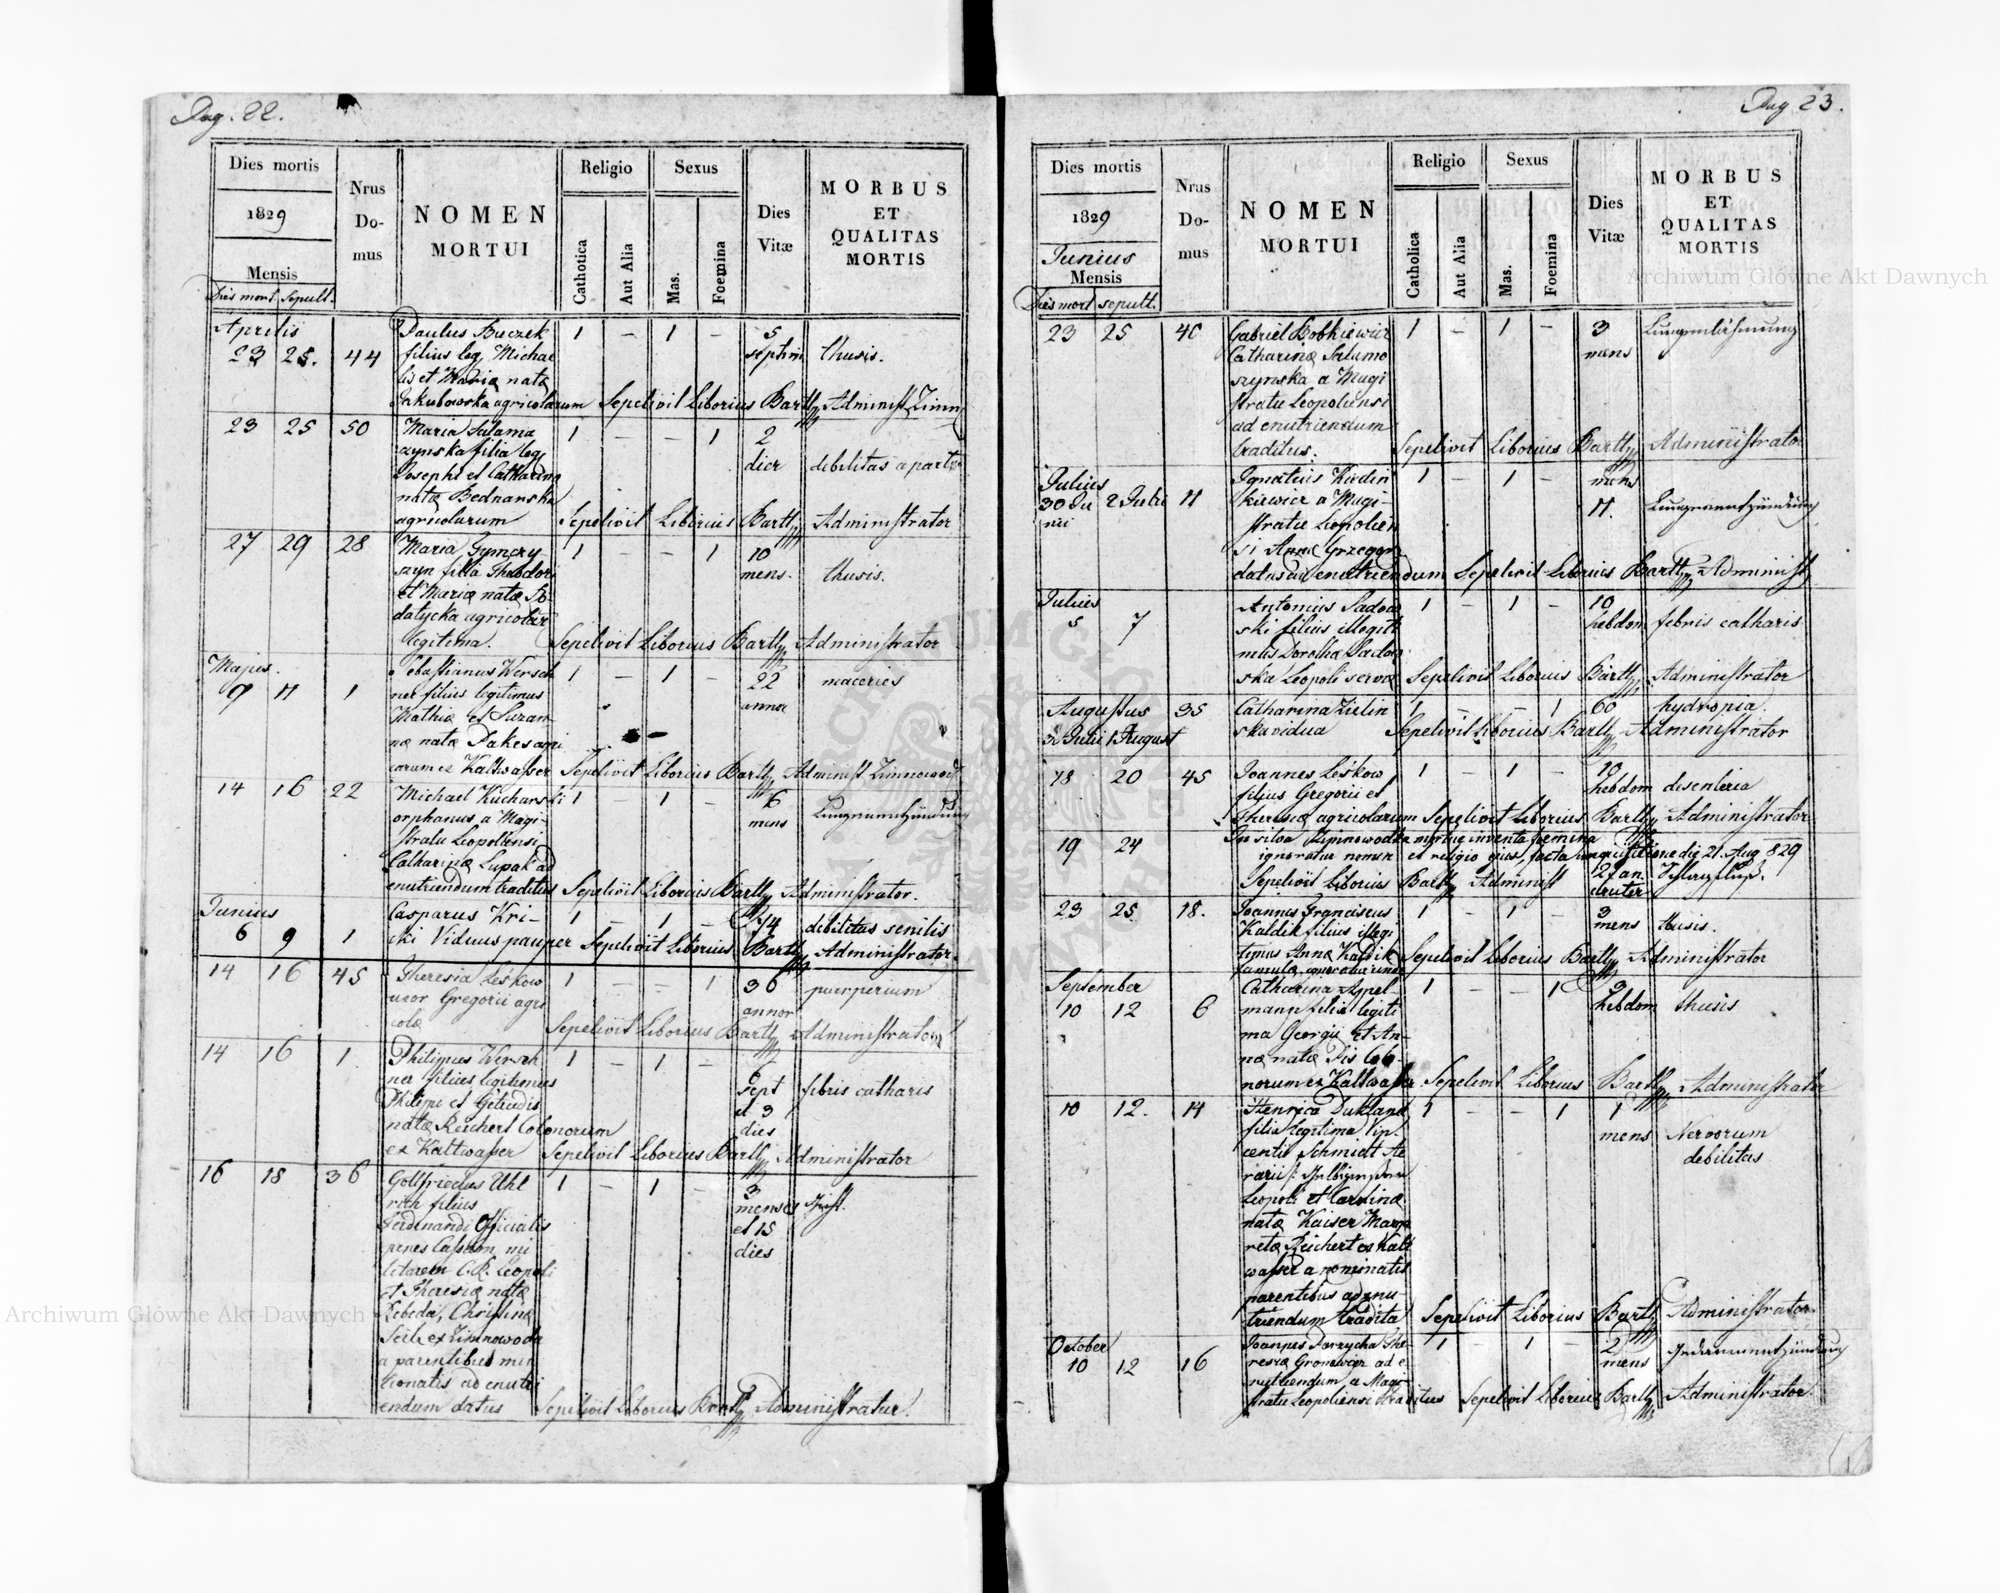 Pag. 22.
Dies mortis
1829
Mensis
Dies mort. Sepult.
Nrus Do- mus
NOMEN MORTUI
Religio
Cathotica
Aut Alia
Sexus
Mas.
Foemina
Dies Vitæ
MORBUS ET QUALITAS MORTIS
Aprilis
23 25. 44 Paulus Buczek 1 – 1 – 5
filius leg. Michae septim thusis.
lis et Mariæ natæ
Jakubowska agricolarum Sepelivit Liborius Bartl Administ. Zimn
23 25 50 Maria Salama 1 – – 1 2
zynska filia leg. dier debilitas a partu
Josephi et Catharinæ
natæ Bednarska
agricolarum Sepelivit Liborius Bartl Administrator
27 29 28 Maria 1 – – 1 10
szyn filia Theodori mens. thusis.
et Mariæ natæ
datycka agricolar
legitima. Sepelivit Liborius Bartl Administrator
Majus.
9 11 1 Sebastianus Wersch 1 – 1 – 22 maceries
ner filius legitimus annor
Mathiæ et Suzan-
næ natæ
ex Kaltwasser Sepelivit Liborius Bartl Administ Zimnowod
14 16 22 Michael Kucharski 1 – 1 – 6 Lungenentzündung
orphanus a Magi- mens
stratu Leopoliensi
Catharinæ Lupak ad
enutriendum traditus Sepelivit Liborius Bartl Administrator.
Junius
6 9 1 Casparus Kri- 1 – 1 – 74 debilitas senilis
ski Viduus pauper Sepelivit Liborius Bartl Administrator.
14 16 45 Theresia Leśkow 1 – – 1 36 puerperium
uxor Gregorii agri annor
colæ Sepelivit Liborius Bartl Administrator
14 16 1. Philipus Wersch 1 – 1 – 6
ner filius legitimus sept febris catharis
Philipi et Getrudis et 3
natæ Reichert Colonorum dies
ex Kaltwasser Sepelivit Liborius Bartl Administrator
16 18 36 Gottfriedus Uhl 1 – 1 – 3
rich filius menses
Ferdinandi Officialis et 15
penes Cassam mi dies
litarem C.R. Leopoli
et Theresiæ natæ
Lebeda, Christinæ
Seib ex Zimnowoda
a parentibus men
tionatis ad enutri
endum datus Sepelivit Liborius Bartl Administrator.
Pag 23.
Dies mortis
1829
Junius
Mensis
Dies mort sepult.
Nrus Do- mus
NOMEN MORTUI
Religio
Catholica
Aut Alia
Sexus
Mas.
Foemina
Dies Vitæ
MORBUS ET QUALITAS MORTIS
23 25 40 Gabriel Bobkiewicz 1 – 1 – 3 Lungenlähmung
Catharinæ Salamo mens
szynska a Magi
stratu Leopoliensi
ad enutriendum
traditus. Sepelivit Liborius Bartl Administrator
Julius
30 Ju 2 Julii 11 Ignatius 1 – 1 – mens
nii kiewicz a Magi- 11. Lungenentzündung
stratu Leopolien
si Annæ Grzegor
datus ad enutriendum Sepelivit Liborius Bartl Administ
Julius
5 7 Antonius Sadow 1 – 1 – 10
ski filius illegiti hebdom febris catharis
mus Dorothæ Sadow
ska Leopoli serva Sepelivit Liborius Bartl Administrator
Augustus 35 Catharina Zielin 1 – – 1 60 hydropia.
31 Julii 1 August ska vidua Sepelivit Liborius Bartl Administrator
18 20 45 Joannes Leśkow 1 – 1 – 10
filius Gregorii et hebdom desenteria
Theresiæ agricolarum Sepelivit Liborius Bartl Administrator
19 24 In silva Zimnowodka mortue inventa foemina
ignoratur nomen et religio ejus, facta inquisitione die 21. Aug 829
Sepelivit Liborius Bartl Administ 27 an.
23 25 18. Joannes Franciscus 1 – 1 – 3
Kaldik filius illegi mens thusis.
timus Annæ Kaldik Sepelivit Liborius Bartl Administrator
famulæ
September
10 12 6 Catharina Appel 1 – – 1 3
mann filia legiti hebdom thusis
ma Georgii et An-
næ natæ Pis Colo-
norum ex Kaltwasser Sepelivit Liborius Bartl Administrator
10 12. 14 Henrica 1 – – 1 1
filia legitima Vin- mens Nervorum
centii Schmidt debilitas
Leopoli et Carolinæ
natæ Kaiser Marga
retæ Reichert ex Kalt
wasser a nominatis
parentibus ad enu-
triendum tradita Sepelivit Liborius Bartl Administrator.
October
10 12 16 Joannes Parzycha The 1 – 1 – 2
resiæ ad e mens
nutriendum a Magi-
stratu Leopoliensi traditus Sepelivit Liborius Bartl Administrator.
Archiwum Główne Akt Dawnych
Archiwum Główne Akt Dawnych